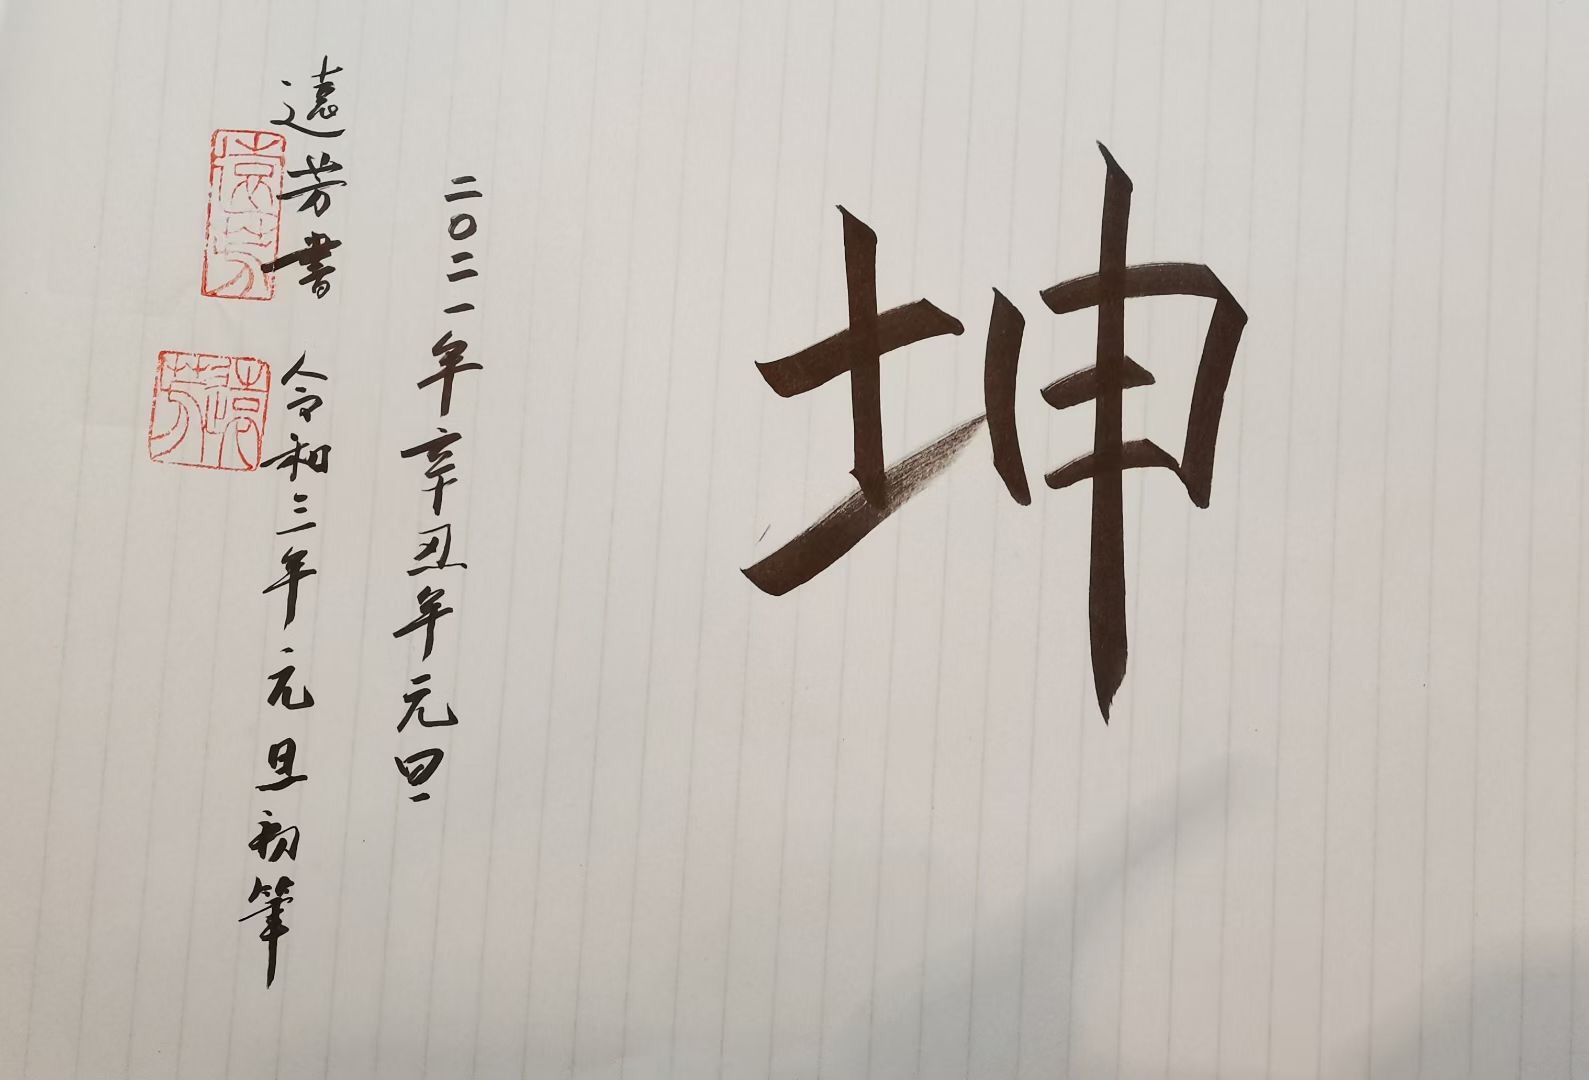 坤
二〇二一年辛丑年元旦
遠芳書 令和三年元旦初筆
遠芳
遠芳